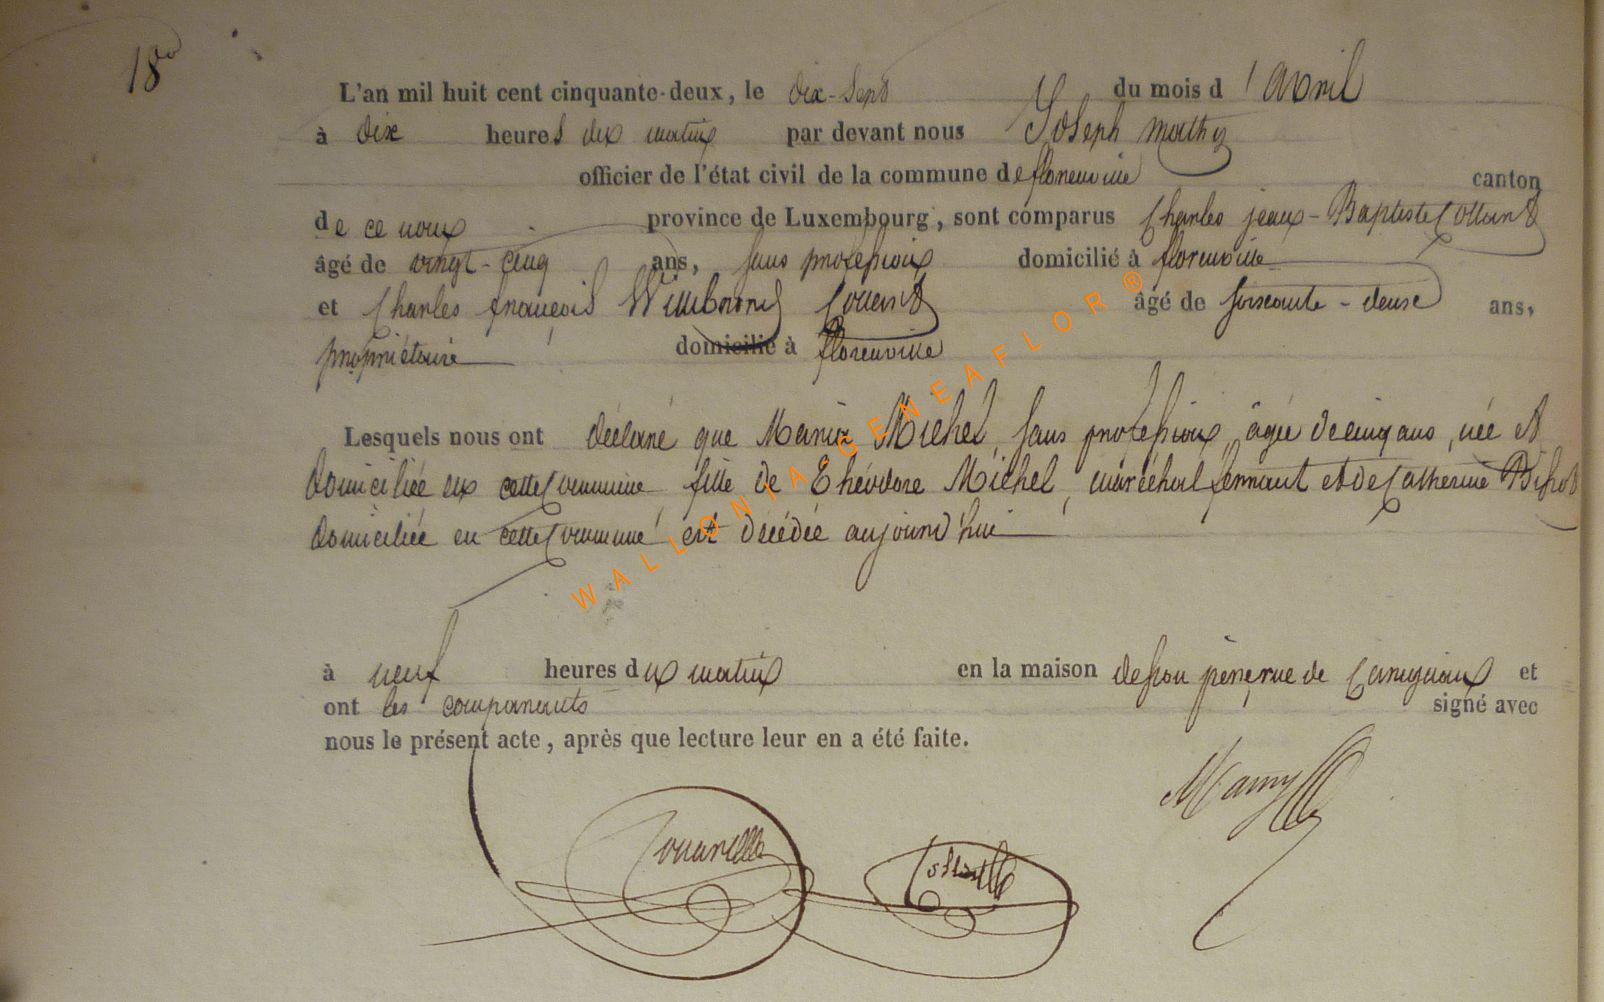 18°
L'an mil huit cent cinquante-deux, le dix-sept du mois d'avril
à dix heures du matin par devant nous Joseph Mathy
officier de l'état civil de la commune de florenville canton
de ce nom province de Luxembourg, sont comparus Charles jean-Baptiste Collard
âgé de vingt-cinq ans, sans profession domicilié à florenville
et Charles françois Willibrord Couard âgé de soixante-deuse ans,
propriétaire domicilié à florenville
Lesquels nous ont déclaré que Maria Michel, sans profession, âgée de cinq ans, née et
domiciliée en cette Commune, fille de Théodore Michel, maréchal ferrant et de Catherine
domiciliée en cette Commune est décédée aujourd'hui
à neuf heures du matin en la maison de son père, rue de Carignan et
ont les comparants signé avec
nous le présent acte, après que lecture leur en a été faite.
WALLONIA-GENEAFLOR ®